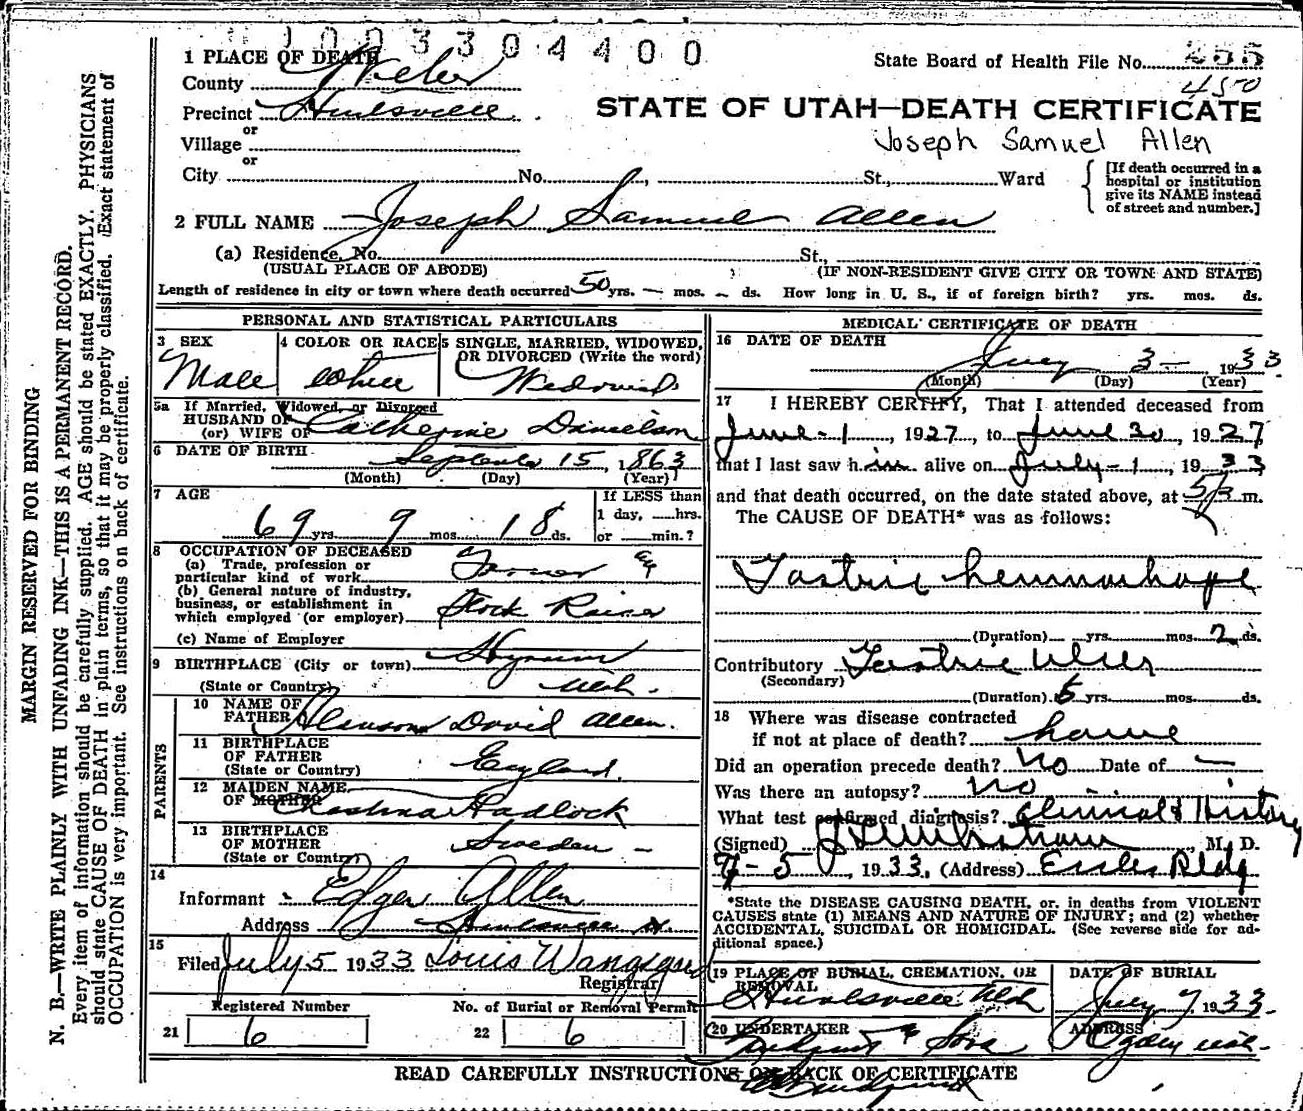 0 0 3 3 0 4 4 0 0
1 PLACE OF DEATH
County Weber
Precinct Huntsville
or
Village
or
City No. , St., Ward
State Board of Health File No. 255
450
STATE OF UTAH—DEATH CERTIFICATE
Joseph Samuel Allen
[If death occurred in a
hospital or institution
give its NAME instead
of street and number.]
2 FULL NAME Joseph Samuel Allen
(a) Residence, No. St.,
(USUAL PLACE OF ABODE) (IF NON-RESIDENT GIVE CITY OR TOWN AND STATE)
Length of residence in city or town where death occurred 50 yrs. — mos. – ds. How long in U. S., if of foreign birth? yrs. mos. ds.
PERSONAL AND STATISTICAL PARTICULARS
3 SEX
Male
4 COLOR OR RACE
White
5 SINGLE, MARRIED, WIDOWED,
OR DIVORCED (Write the word)
Widowed
5a If Married, Widowed, or Divorced
HUSBAND OF
(or) WIFE OF Catherine Danielson
6 DATE OF BIRTH September 15, 1863
(Month) (Day) (Year)
7 AGE
69 yrs. 9 mos. 18 ds.
If LESS than
1 day, hrs.
or min.?
8 OCCUPATION OF DECEASED
(a) Trade, profession or
particular kind of work Farmer &
(b) General nature of industry,
business, or establishment in
which employed (or employer) Stock Raiser
(c) Name of Employer
9 BIRTHPLACE (City or town) Hyrum
(State or Country) Utah.
PARENTS
10 NAME OF
FATHER David Allen.
11 BIRTHPLACE
OF FATHER
(State or Country) England.
12 MAIDEN NAME
OF MOTHER Hadlock
13 BIRTHPLACE
OF MOTHER
(State or Country) Sweden –
14
Informant Edger Allen
Address Huntsville U.
15
Filed July 5 1933 Louis Wangsgard
Registrar
Registered Number
21 6
No. of Burial or Removal Permit
22 6
MEDICAL CERTIFICATE OF DEATH
16 DATE OF DEATH
July 3 – 1933
(Month) (Day) (Year)
17 I HEREBY CERTIFY, That I attended deceased from
June - 1, 1927, to June 30, 1927
that I last saw him alive on July - 1, 1933
and that death occurred, on the date stated above, at m.
The CAUSE OF DEATH* was as follows:
Gastric hemmorhage
(Duration) yrs. mos. 2 ds.
Contributory Gastric Ulcer
(Secondary)
(Duration) 5 yrs. mos. ds.
18 Where was disease contracted
if not at place of death? home
Did an operation precede death? No Date of —
Was there an autopsy? No
What test confirmed diagnosis? Clinical & History
(Signed) M. D.
7 - 5, 1933. (Address) Eccles Bldg
*State the DISEASE CAUSING DEATH, or, in deaths from VIOLENT
CAUSES state (1) MEANS AND NATURE OF INJURY; and (2) whether
ACCIDENTAL, SUICIDAL OR HOMICIDAL. (See reverse side for ad-
ditional space.)
19 PLACE OF BURIAL, CREMATION, OR
REMOVAL
Huntsville Utah
DATE OF BURIAL
July 7 1933.
20 UNDERTAKER
Lindquist & Sons
ADDRESS
Ogden Utah.
READ CAREFULLY INSTRUCTIONS ON BACK OF CERTIFICATE
MARGIN RESERVED FOR BINDING
N. B.—WRITE PLAINLY WITH UNFADING INK—THIS IS A PERMANENT RECORD.
Every item of information should be carefully supplied. AGE should be stated EXACTLY. PHYSICIANS
should state CAUSE OF DEATH in plain terms, so that it may be properly classified. Exact statement of
OCCUPATION is very important. See instructions on back of certificate.